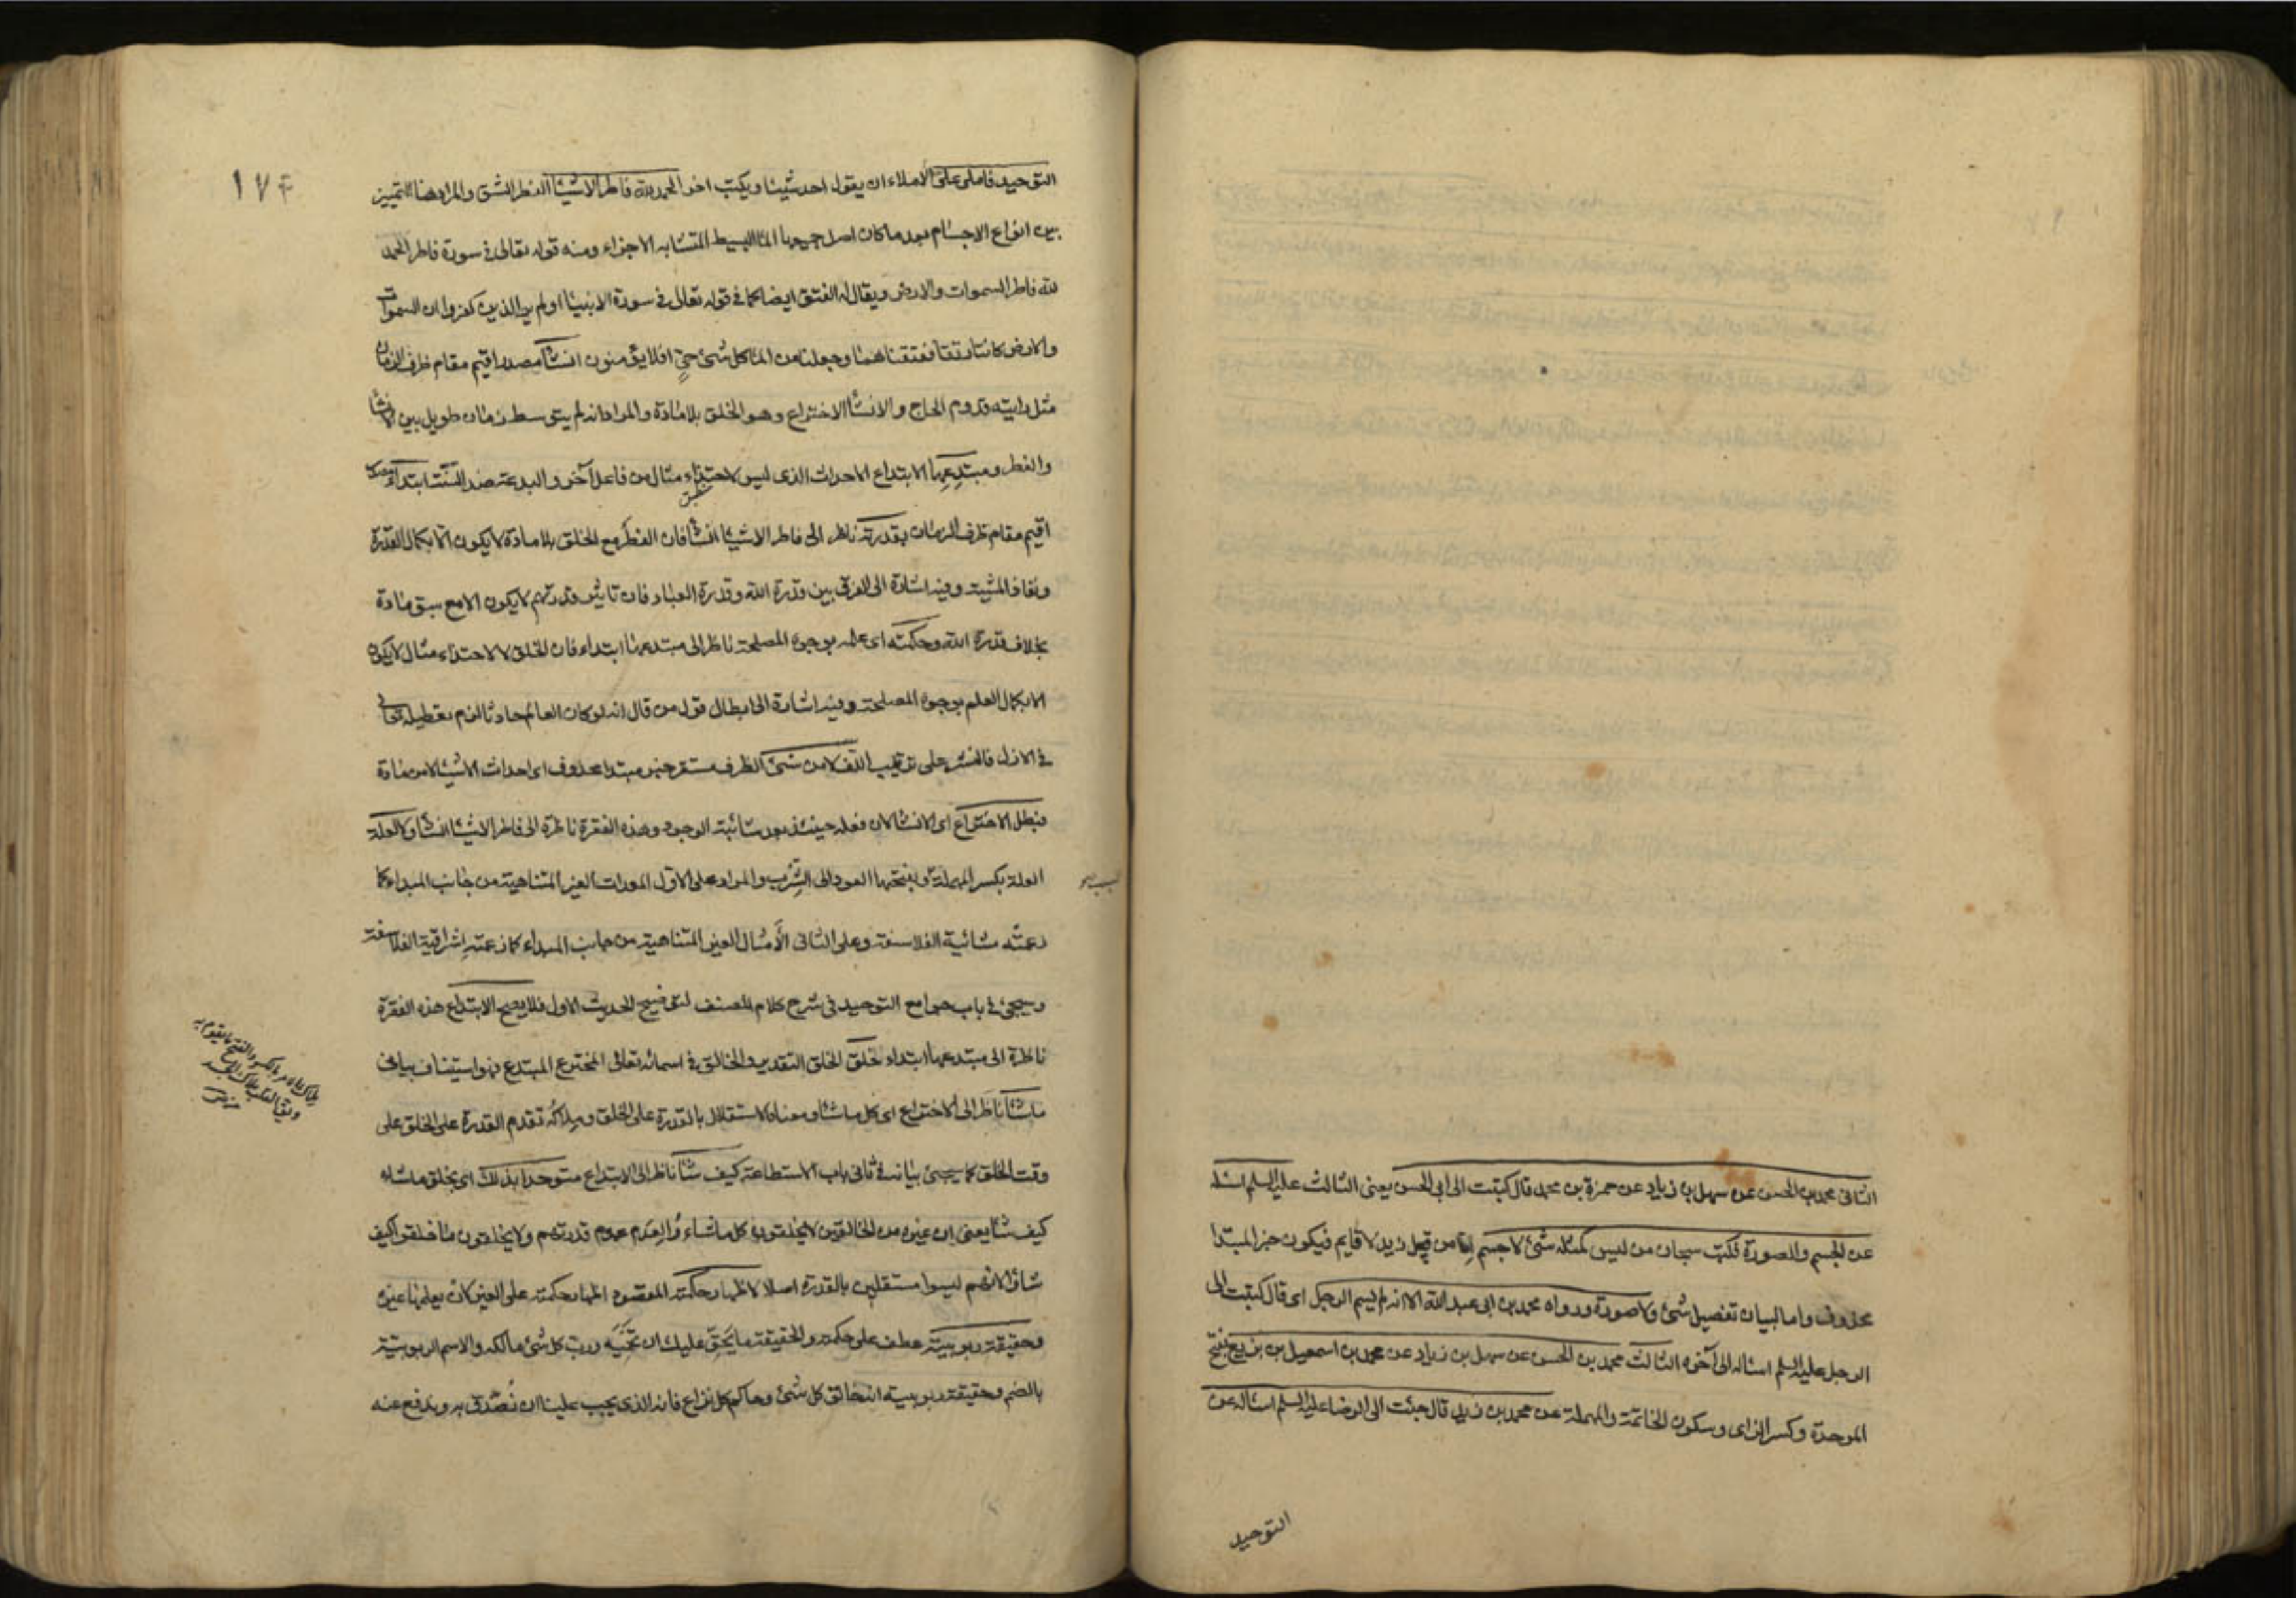 الثانى محمد بن الحسن عن سهل بن زياد عن حمزة بن محمد قال كتبت الى ابى الحسن يعنى الثالث عليه السلم اسئله
عن الجسم والصورة فكتب سبحان من ليس كمثله شئ لا جسم اما من قبيل زيد لا قايم فيكون خبر المبتدا
محذوف واما لبيان تفصيل شئ ولا صورة ورواه محمد بن ابى عبد الله الا انه لم يسم الرجل اى قال كتبت الى
الرجل عليه السلم اساله الى آخره الثالث محمد بن الحسن عن سهل بن زياد عن محمد بن اسمعيل بن بزيع بفتح
الموحدة وكسر الزاى وسكون الخاتمة والمهملة عن محمد بن زيد قال جئت الى الرضا عليه السلم اسئاله عن
التوحيد
١٧۴
التوحيد فاملى على الأملاء ان يقول احد شيئا ويكتب اخر الحمد لله فاطر الاشيئا الفطر الشق والمراد هنا التمييز
بين انواع الاجسام بعد ما كان اصل جميعها الما البسيط المتشابه الاجزاء ومنه قوله تعالى فى سورة فاطر الحمد
لله فاطر السموات والارض ويقال له الفتق ايضا كما فى قوله تعالى فى سورة الانبيا اولم ير الذين كفروا ان السموات
والارض كانتا رتقا ففتقناهما وجعلنا من الما كل شئ حيّ افلا يؤمنون انشآ مصدر اقيم مقام ظرف الزمان
مثل رايته قدوم الحاج والانشا الاختراع وهو الخلق بلا مادة والمراد انه لم يتوسط زمان طويل بين الانشا
والفطر ومبتدعها الابتداع الاحداث الذى ليس لاحتذاء مثال من فاعل آخر والبدعة ضد السنت ابتدآء مصدر
اقيم مقام ظرف الزمان بقدرته ناظر الى فاطر الاشيئا انشآ فان الفطر مع الخلق بلا مادة لا يكون الا بكمال القدرة
ونفاذ المشية وفيه اشارة الى الفرق بين قدرة الله وقدرة العباد فان تاثير قدرتهم لا يكون الا مع سبق مادة
بخلاف قدرة الله وحكمته اى علمه بوجوه المصلحة ناظر الى مبتدعها ابتداء فان الخلق لا لاحتذاء مثال لا يكون
الا بكمال العلم بوجوه المصلحة وفيه اشارة الى ابطال قول من قال انه لو كان العالم حادثا لزم تعطيله تعالى
فى الازل فالنشر على ترتيب اللف لا من شئ الظرف مستقر خبر مبتدا محذوف اى احداث الاشيئا لا من مادة
فبطل الاختراع اى الانشا لان فعله حينئذ بعد شائبة الوجود وهذه الفقرة ناظرة الى فاطر الاشيئا انشآ ولا لعلة
العلة بكسر المهملة وبفتحها العود الى الشرب والمراد على الاول المعدات الغير المتناهية من جانب المبداء كما
زعمته مشائية الفلاسفة وعلى الثانى الأمثال الغير المتناهية من جانب المبداء كما زعمته إشراقية الفلاسفة
وسيجئ فى باب جوامع التوحيد فى شرح كلام المصنف لتوضيح الحديث الاول فلا يصح الابتداع هذه الفقرة
ناظرة الى مبتدعها ابتداء خلق الخلق التقدير والخالق فى اسمائه تعالى المخترع المبتدع فهو استيناف بيانى
ماشآ ناظر الى الاختراع اى كل ما شآ ومعناه الاستقلال بالقدرة على الخلق وملاكه تقدم القدرة على الخلق على
وقت الخلق كما يجئ بيانه فى ثانى باب الاستطاعة كيف شآ ناظر الى الابتداع متوحدا بذلك اى بخلق ما شاء
كيف شآ يعنى ان غيره من الخالقين لا يخلقون كل ما شاءوا لعدم عموم قدرتهم ولا يخلقون ما خلقوا كيف
شاؤا لانهم ليسوا مستقلين بالقدرة اصلا لاظهار حكمته المقصود اظهار حكمته على الغير كان يعلمها غيره
وحقيقة ربوبيته عطف على حكمته والحقيقة ما يحق عليك ان تحميه ورب كل شئ مالكه والاسم الربوبية
بالضم وحقيقة ربوبيته انه خالق كل شئ وحاكم كل نزاع فانه الذى يجب علينا ان نصدق به وندفع عنه